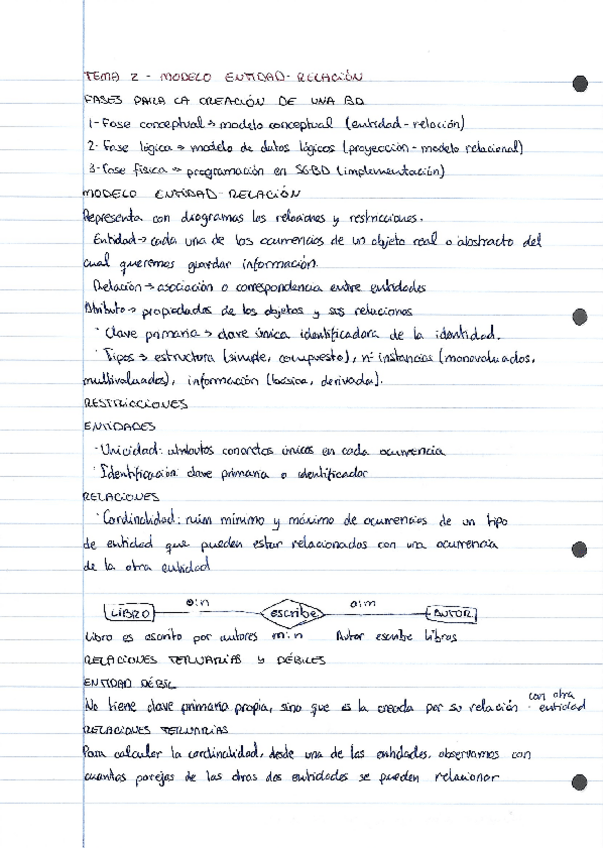 TEMA 2 - MODELO ENTIDAD-RELACIÓN
FASES PARA LA CREACIÓN DE UNA BD
1-Fase conceptual → modelo conceptual (entidad-relación)
2-Fase lógica → modelo de datos lógicos (proyección-modelo relacional)
3-Fase física → programación en SGBD (implementación)
MODELO ENTIDAD-RELACIÓN
Representa con diagramas las relaciones y restricciones.
Entidad → cada una de las ocurrencias de un objeto real o abstracto del
cual queremos guardar información.
Relación → asociación o correspondencia entre entidades
Atributo → propiedades de los objetos y sus relaciones
· Clave primaria → clave única identificadora de la identidad.
· Tipos → estructura (simple, compuesto), nº instancias (monovaluados,
multivaluados), información (básica, derivada).
RESTRICCIONES
ENTIDADES
· Unicidad: atributos concretos únicos en cada ocurrencia
· Identificación: clave primaria o identificador
RELACIONES
· Cardinalidad: núm mínimo y máximo de ocurrencias de un tipo
de entidad que pueden estar relacionados con una ocurrencia
de la otra entidad
LIBRO 0:n escribe 0:m AUTOR
Libro es escrito por autores m:n Autor escribe libros
RELACIONES TERNARIAS Y DÉBILES
ENTIDAD DÉBIL
No tiene clave primaria propia, sino que es la creada por su relación con otra entidad
RELACIONES TERNARIAS
Para calcular la cardinalidad, desde una de las entidades, observamos con
cuantas parejas de las otras dos entidades se pueden relacionar